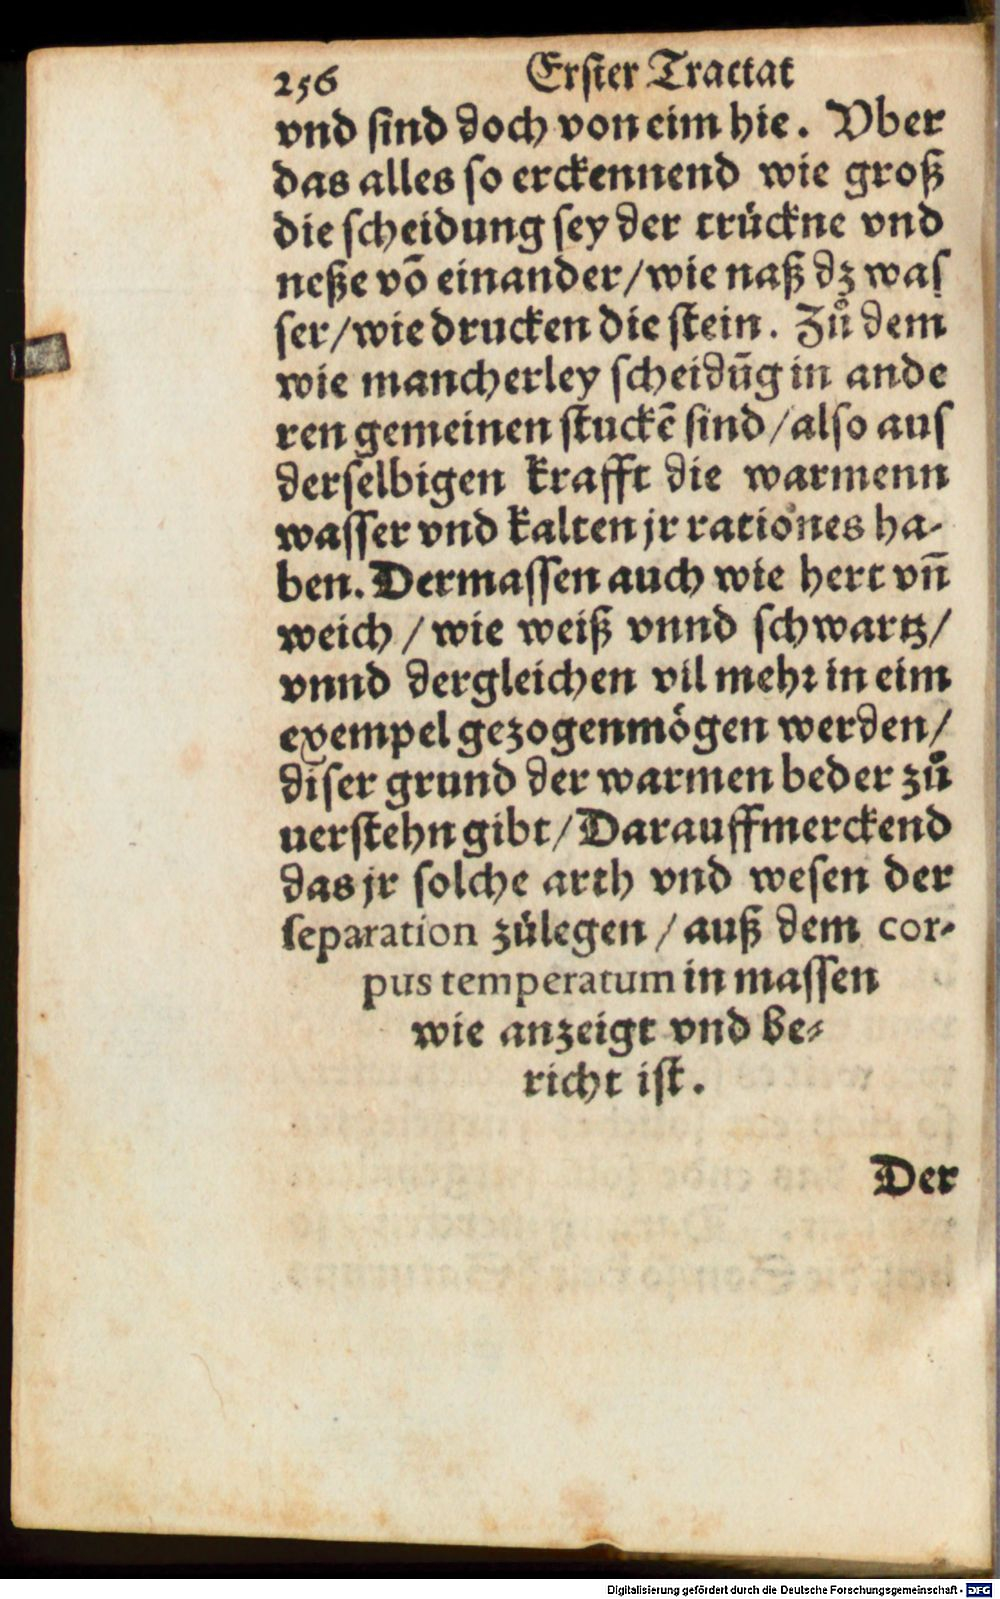 256 Erster Tractat
vnd sind doch von eim hie. Vber
das alles so erckennend wie groß
die scheidung sey der trückne vnd
neße võ einander/wie naß dz was
ser/wie drucken die stein. Zů dem
wie mancherley scheidũg in ande
ren gemeinen stuckẽ sind/also aus
derselbigen krafft die warmenn
wasser vnd kalten jr rationes ha-
ben. Dermassen auch wie hert vñ
weich/wie weiß vnnd schwartz/
vnnd dergleichen vil mehr in eim
exempel gezogenmögen werden/
diser grund der warmen beder zů
uerstehn gibt/Darauffmerckend
das jr solche arth vnd wesen der
separation zůlegen/auß dem cor-
pus temperatum in massen
wie anzeigt vnd be-
richt ist.
Der
Digitalisierung gefördert durch die Deutsche Forschungsgemeinschaft - DFG